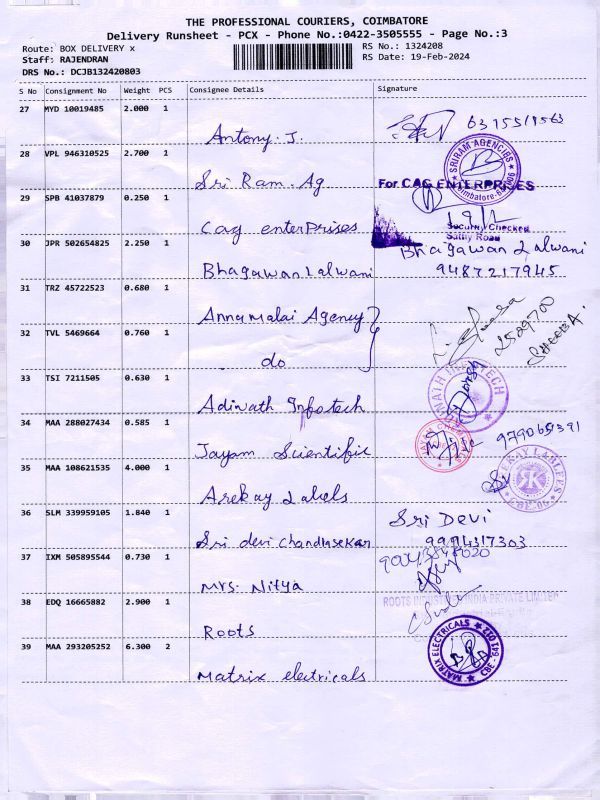 THE PROFESSIONAL COURIERS, COIMBATORE
Delivery Runsheet - PCX - Phone No.:0422-3505555 - Page No.:3
Route: BOX DELIVERY x
RS No.: 1324208
Staff: RAJENDRAN
RS Date: 19-Feb-2024
DRS No.: DCJB132420803
S No Consignment No Weight PCS Consignee Details Signature
27 MYD 10019485 2.000 1
Antony. J.
28 VPL 946310525 2.700 1
SRIRAM AGENCIES
Coimbatore
Sri Ram. Ag
For CAG ENTERPRISES
29 SPB 41037879 0.250 1
Cag enterPrises
Security Checked
Sathy Road
30 JPR 502654825 2.250 1
Bhagawan Lalwani
Bhagawan Lalwani
9487217945
31 TRZ 45722523 0.680 1
Annamalai Agency
2529700
SHEEBA.
32 TVL 5469664 0.760 1
do
33 TSI 7211505 0.630 1
Adinath Infotech
34 MAA 288027434 0.585 1
Jayam Scientific
35 MAA 108621535 4.000 1
Arekay Labels
36 SLM 339959105 1.840 1
Sri Devi
Sri devi chandrasekar
37 IXM 505895544 0.730 1
Mrs. Nitya
38 EDQ 16665882 2.900 1
ROOTS INDUSTRIES INDIA PRIVATE LIMITED
Roots
39 MAA 293205252 6.300 2
MATRIX ELECTRICALS
Matrix electricals